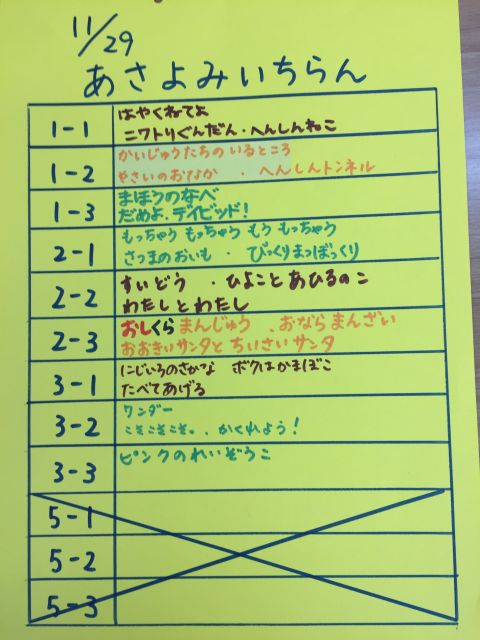 11/29
あさよみいちらん
1-1
はやくねてよ
ニワトリぐんだん・へんしんねこ
1-2
かいじゅうたちのいるところ
やさいのおなか ・ へんしんトンネル
1-3
まほうのなべ
だめよ、デイビッド!
2-1
もっちゃう もっちゃう もう もっちゃう
さつまのおいも ・ びっくりまつぼっくり
2-2
すいどう ・ ひよことあひるのこ
わたしとわたし
2-3
おしくらまんじゅう 、おならまんざい
おおきいサンタとちいさいサンタ
3-1
にじいろのさかな ボクはかまぼこ
たべてあげる
3-2
ワンダー
こそこそこそ、、かくれよう!
3-3
ピンクのれいぞうこ
5-1
5-2
5-3